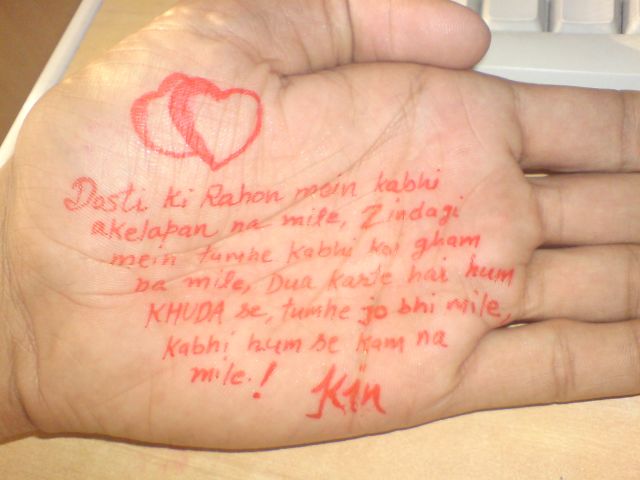 Dosti ki Rahon mein kabhi
akelapan na mile, Zindagi
mein tumhe kabhi koi gham
na mile, Dua karte hai hum
KHUDA se, tumhe jo bhi mile,
kabhi hum se kam na
mile.!